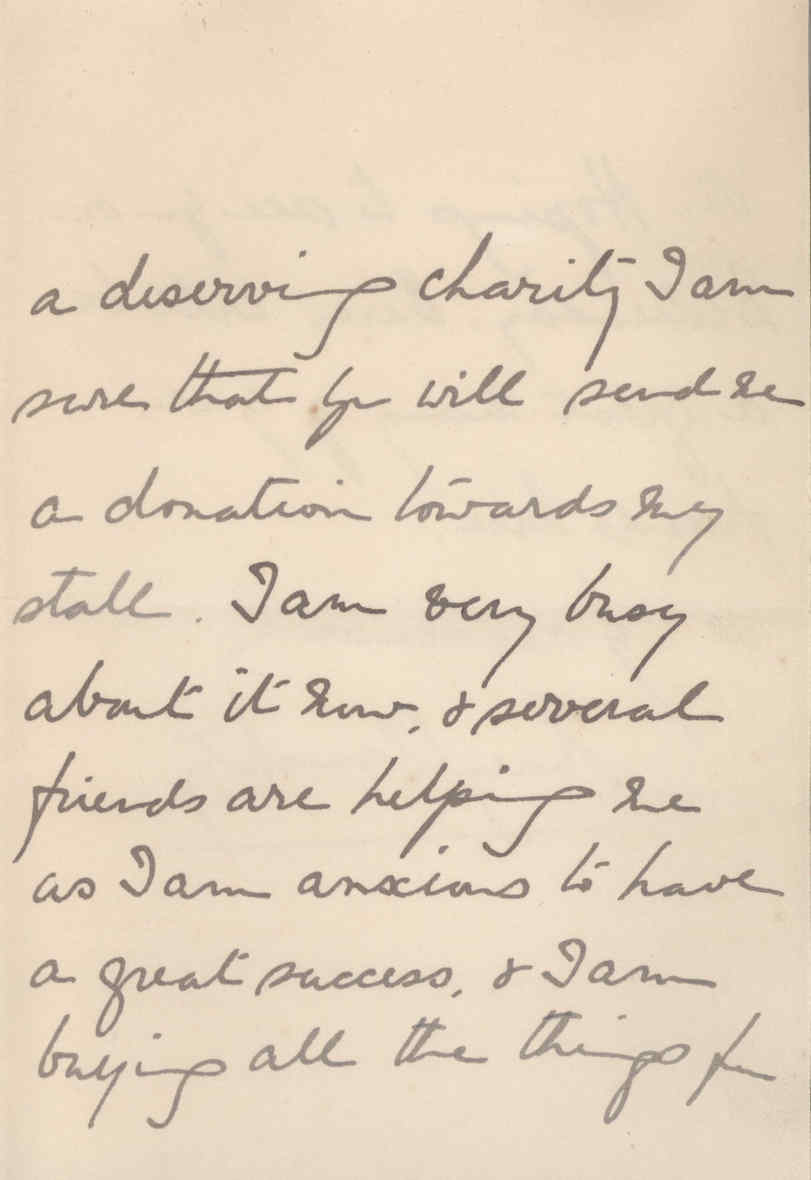 a deserving charity I am
sure that you will send me
a donation towards my
stall. I am very busy
about it now, & several
friends are helping me
as I am anxious to have
a great success, & I am
buying all the things for